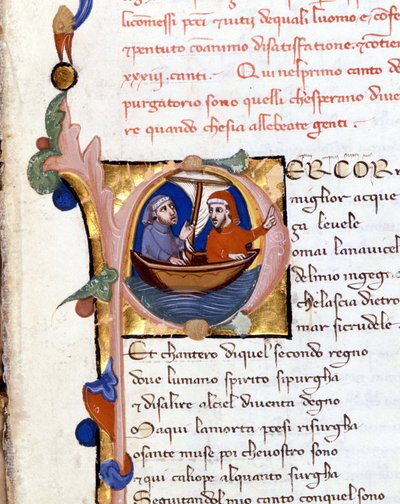 licomessi pcti & uitij dequali luomo e cofe
& pentuto coanimo disatisfatione. & cotien
xxxiij. canti. Qui nelprimo canto d
purgatorio sono quelli chesperano diue
re quando chesia allebeate genti.
PERCOR r
miglior acque
ça leuele
omai lanauicel
delmio ingegn
chelascia dietro
mar sicrudele
Et chantero diquel secondo regno
doue lumano spirito sipurgha
& disalire alciel diuenta degno
Maqui lamorta poesi risurgha
osante muse poi cheuostro sono
& qui caliope alquanto surgha
Seguitando ilmio canto conquel suono